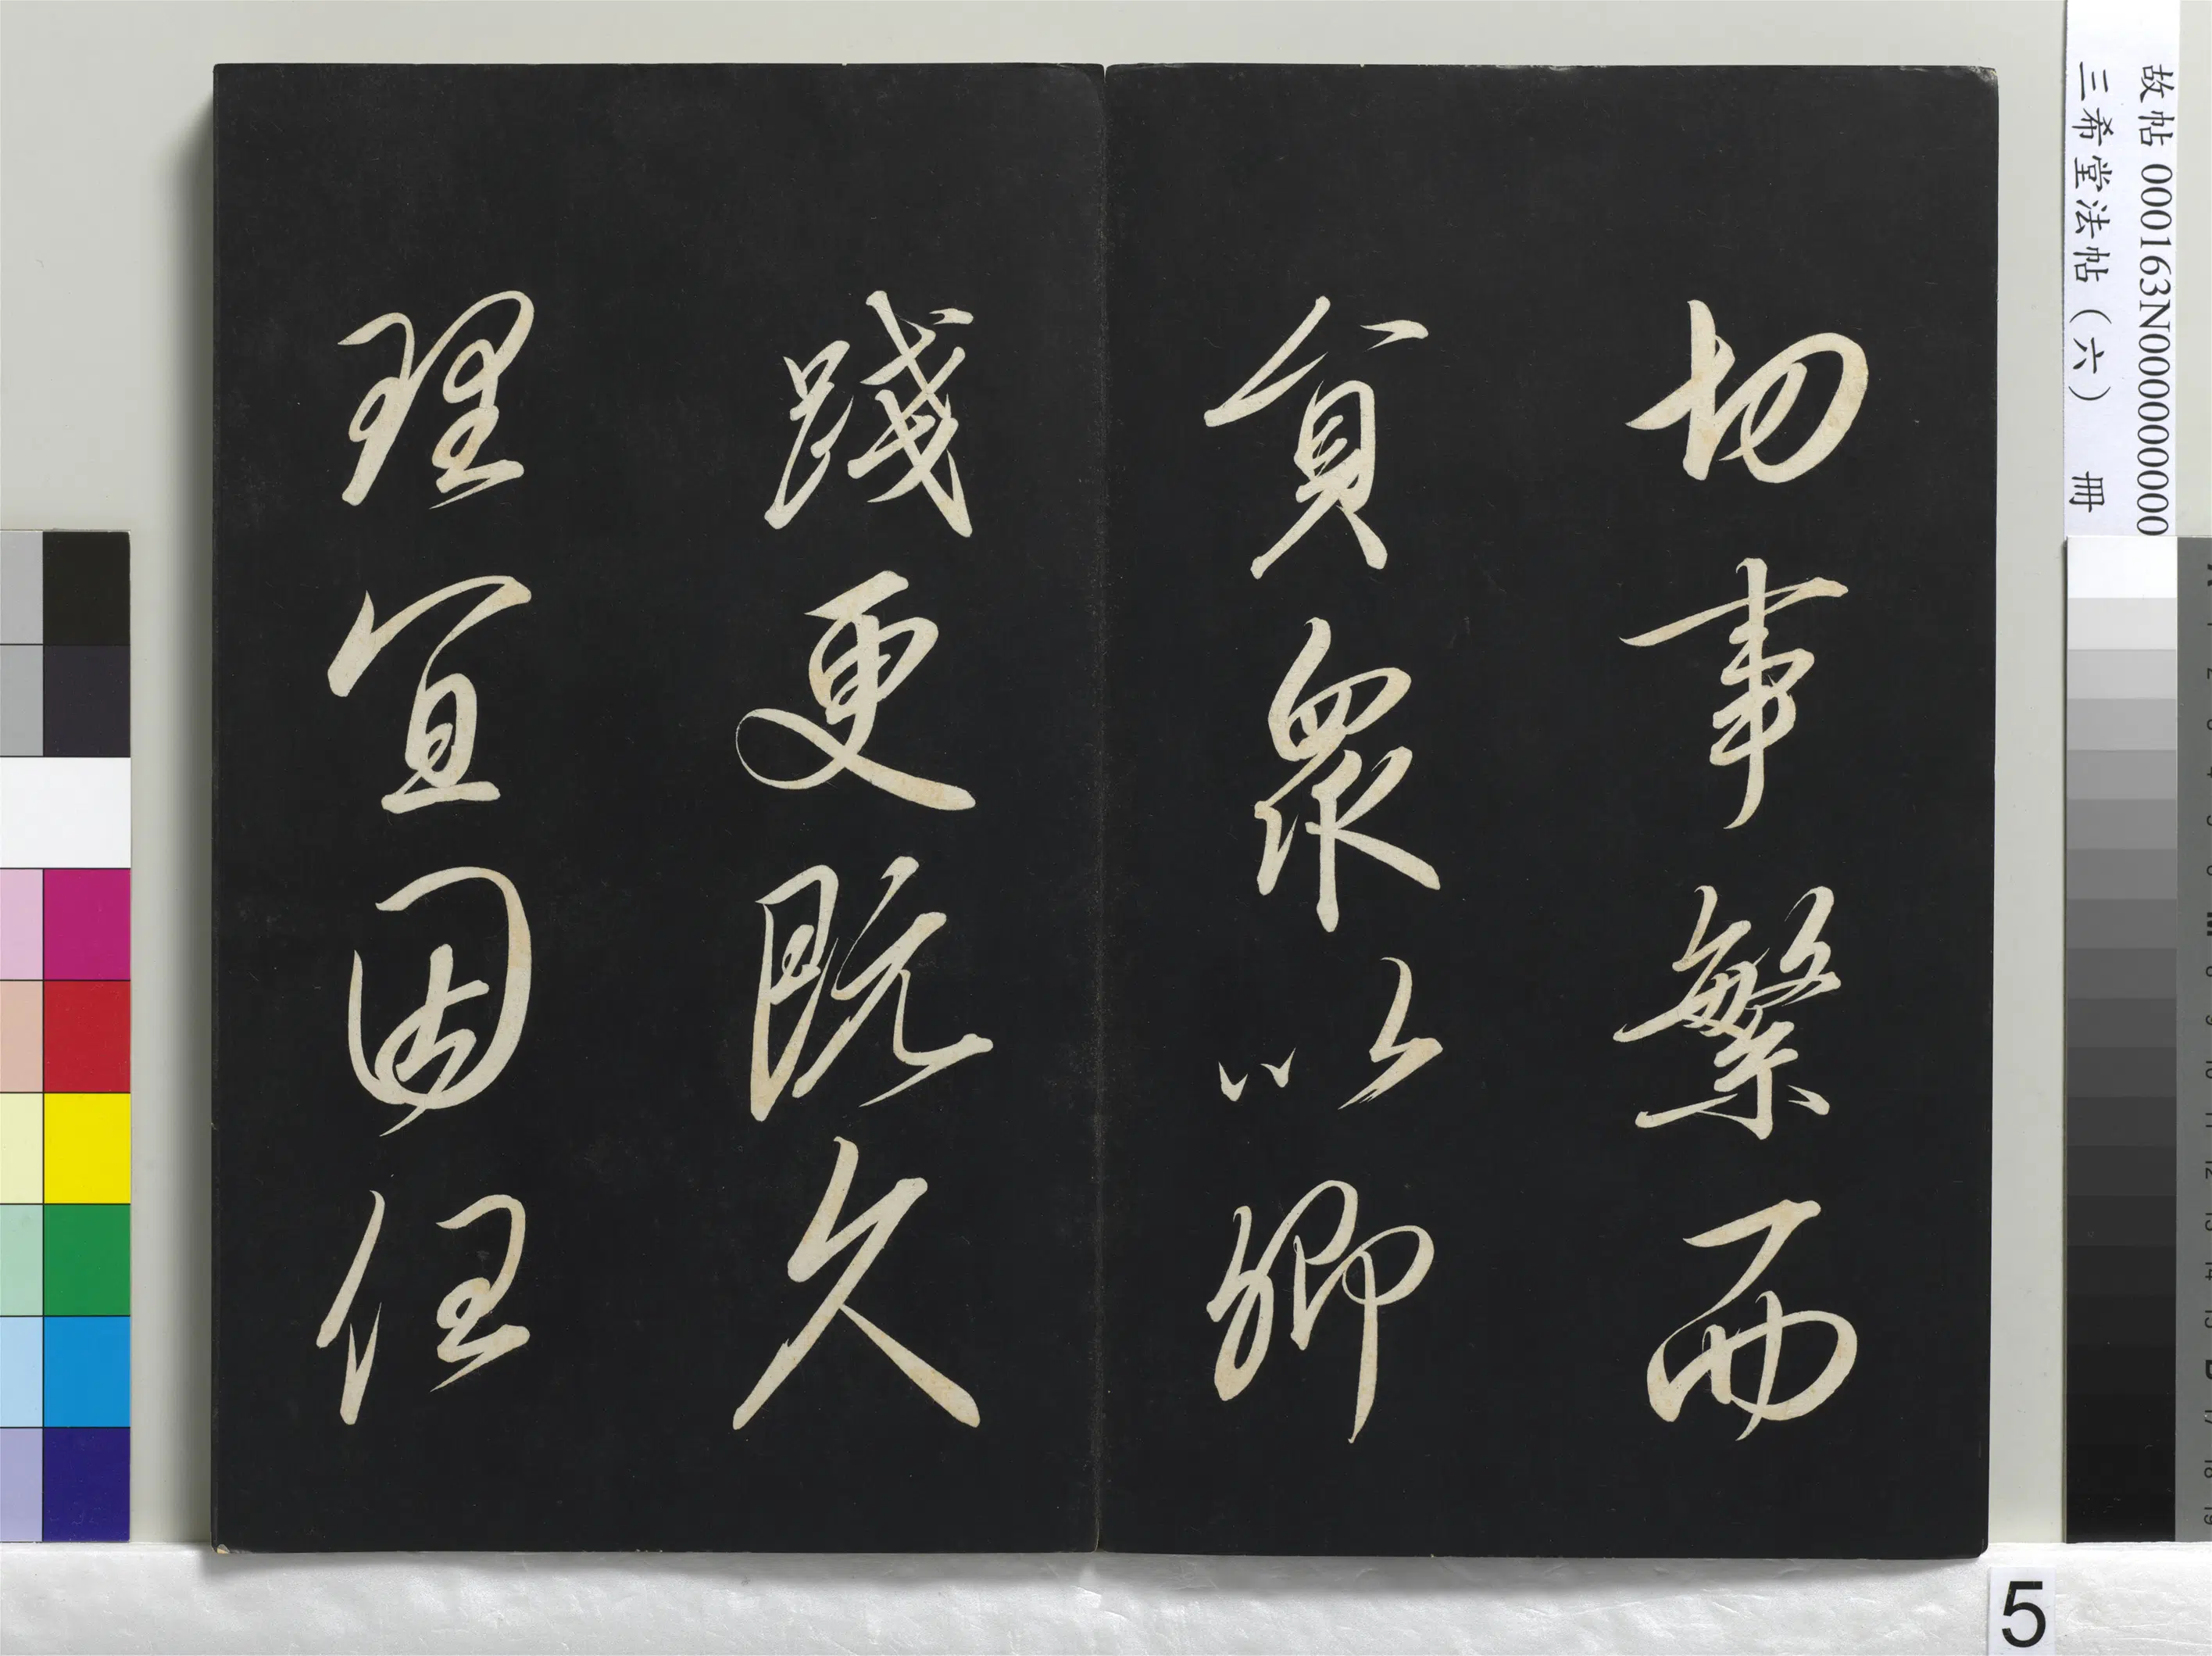 故帖 000163N000000000
三希堂法帖（六） 冊
切事繁而
員眾以卿
踐更既久
理宜因任
5